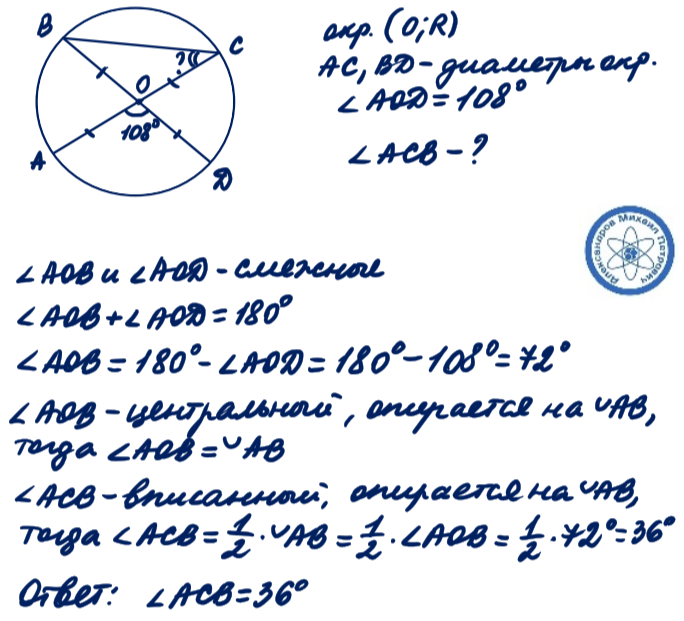 B
C
?
O
108°
A
D
окр. (O;R)
AC, BD - диаметры окр.
∠AOD = 108°
∠ACB - ?
Александров Михаил Петрович
∠AOB и ∠AOD - смежные
∠AOB + ∠AOD = 180°
∠AOB = 180° - ∠AOD = 180° - 108° = 72°
∠AOB - центральный, опирается на ◡AB,
тогда ∠AOB = ◡AB
∠ACB - вписанный, опирается на ◡AB,
тогда ∠ACB = 1/2 · ◡AB = 1/2 · ∠AOB = 1/2 · 72° = 36°
Ответ: ∠ACB = 36°